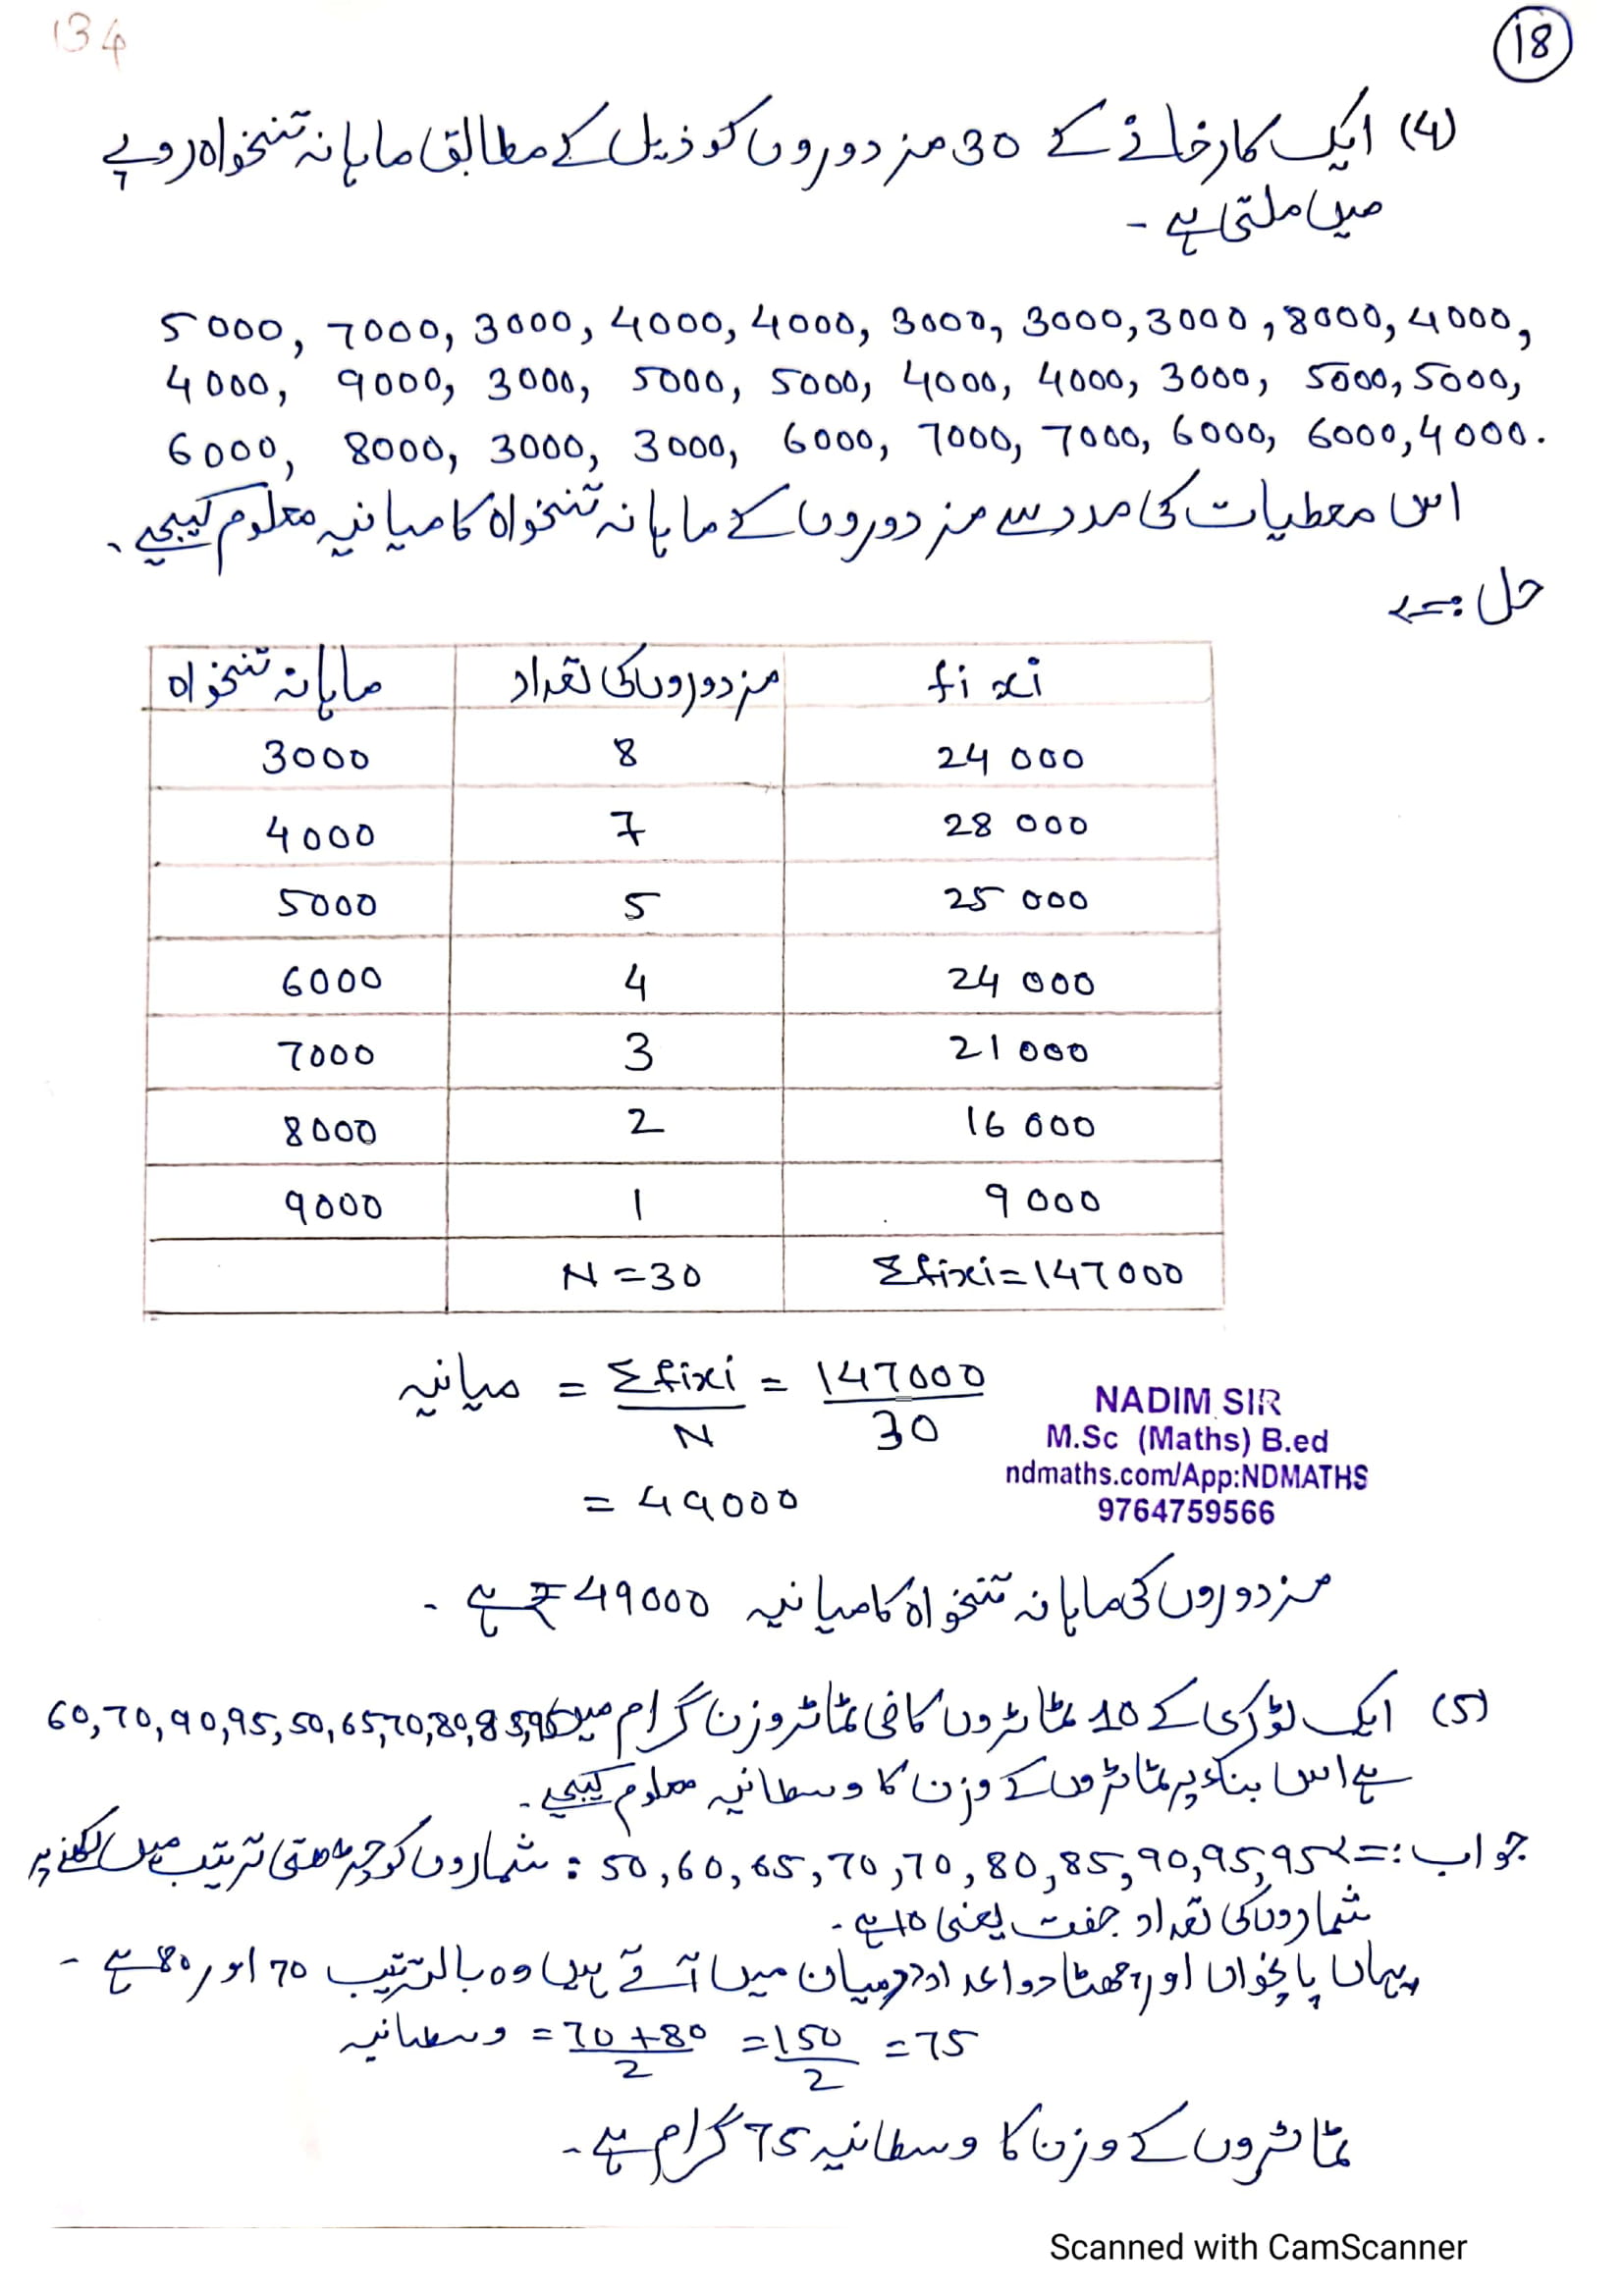 134
18
(4) ایک کارخانے کے 30 مزدوروں کو ذیل کے مطابق ماہانہ تنخواہ روپے
میں ملتی ہے -
5000, 7000, 3000, 4000, 4000, 3000, 3000, 3000, 8000, 4000,
4000, 9000, 3000, 5000, 5000, 4000, 4000, 3000, 5000, 5000,
6000, 8000, 3000, 3000, 6000, 7000, 7000, 6000, 6000, 4000.
اس معطیات کی مدد سے مزدوروں کے ماہانہ تنخواہ کا میانیہ معلوم کیجیے۔
حل :=>
ماہانہ تنخواہ مزدوروں کی تعداد fixi
3000 8 24000
4000 7 28000
5000 5 25000
6000 4 24000
7000 3 21000
8000 2 16000
9000 1 9000
N = 30 Σfixi = 147000
میانیہ = Σfixi / N = 147000 / 30
= 49000
NADIM SIR
M.Sc (Maths) B.ed
ndmaths.com/App:NDMATHS
9764759566
مزدوروں کی ماہانہ تنخواہ کا میانیہ 49000 ₹ ہے -
(5) ایک ٹوکری کے 10 ٹماٹروں کا فی ٹماٹر وزن گرام میں 60, 70, 90, 95, 50, 65, 70, 80, 85, 95
ہے اس بناء پر ٹماٹروں کے وزن کا وسطانیہ معلوم کیجیے۔
جواب :=> 50, 60, 65, 70, 70, 80, 85, 90, 95, 95 : شماروں کو چڑھتی ترتیب میں لکھنے پر
شماروں کی تعداد جفت یعنی 10 ہے -
یہاں پانچواں اور چھٹا دو اعداد درمیان میں آتے ہیں وہ بالترتیب 70 اور 80 ہے -
وسطانیہ = 70 + 80 / 2 = 150 / 2 = 75
ٹماٹروں کے وزن کا وسطانیہ 75 گرام ہے -
Scanned with CamScanner